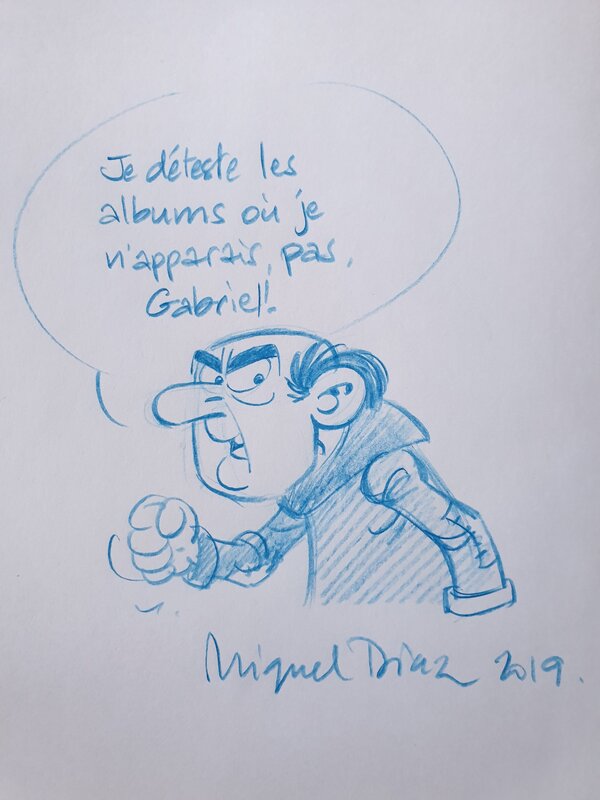 Je déteste les
albums où je
n'apparais pas,
Gabriel!
Miguel Diaz 2019.